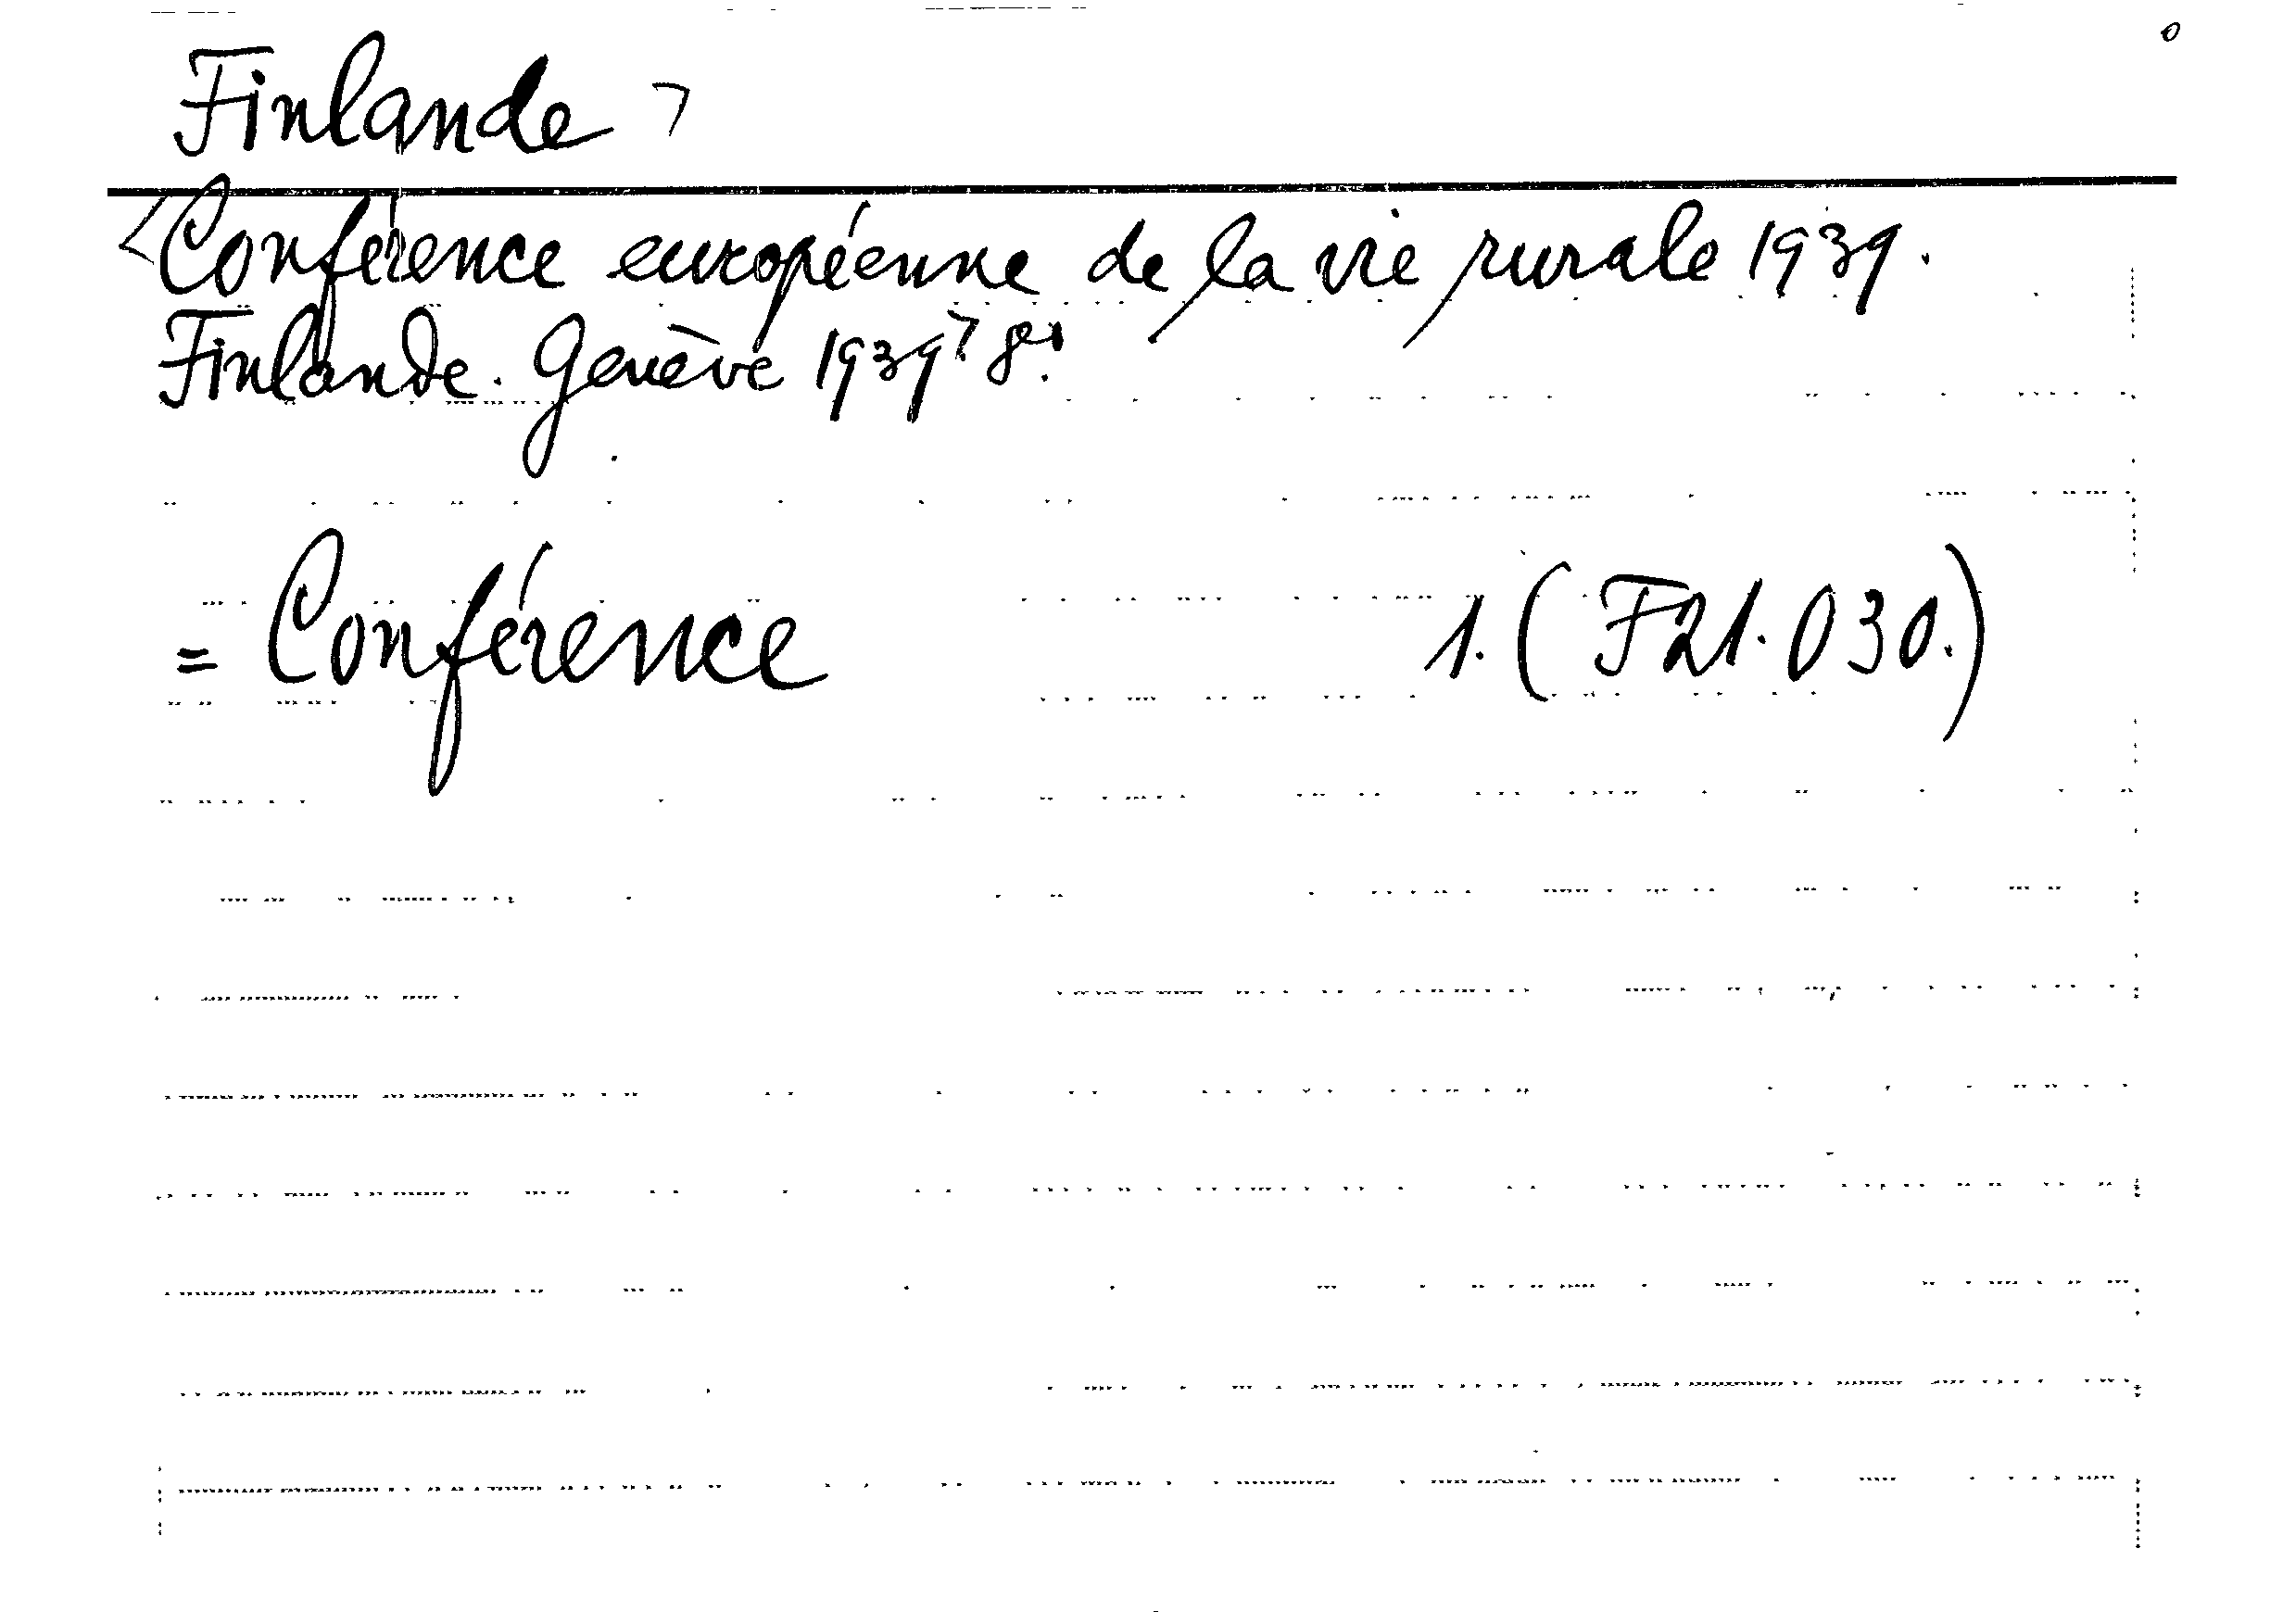 Finlande >
<Conférence européenne de la vie rurale 1939.
Finlande. Genève 1939> 8°.
= Conférence 1. (F21.030.)